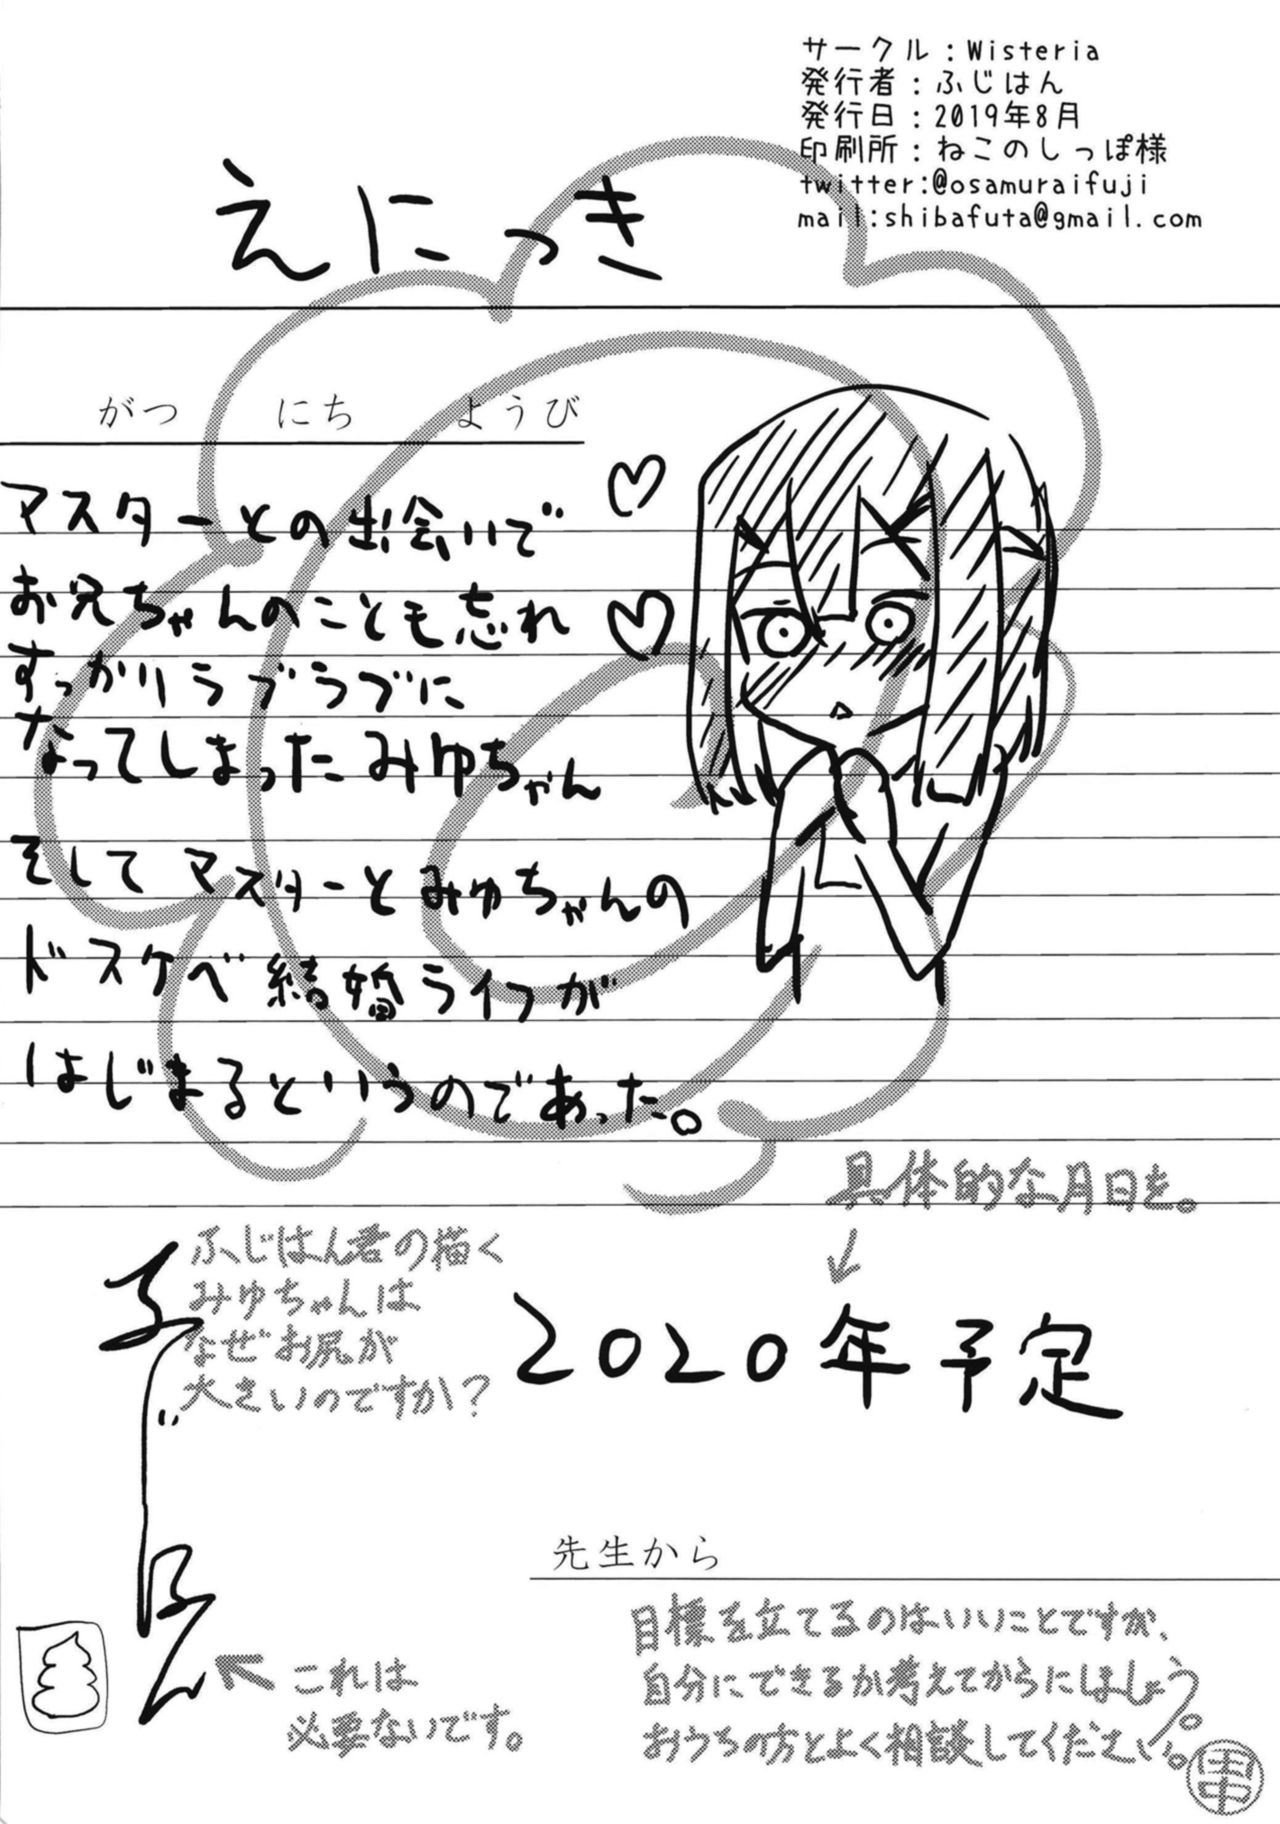 サークル：Wisteria
発行者：ふじはん
発行日：2019年8月
印刷所：ねこのしっぽ様
twitter:@osamuraifuji
mail:shibafuta@gmail.com
えにっき
がつ にち ようび
マスターとの出会いで
お兄ちゃんのことも忘れ
すっかりラブラブに
なってしまったみゆちゃん
そしてマスターとみゆちゃんの
ドスケベ結婚ライフが
はじまるというのであった。
具体的な月日を。
ふじはん君の描く
みゆちゃんは
なぜお尻が
大きいのですか？
2020年予定
ふじはん
これは
必要ないです。
先生から
目標を立てるのはいいことですが、
自分にできるか考えてからにしましょう。
おうちの方とよく相談してください。
田中